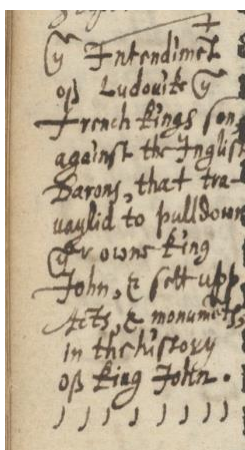 yͤ Intendimēt
off Ludovike yͤ
French kings son,
against the Inglish
Barons, that tra-
vaylid to pull down
yͤr owne king
John, & sett upp.
Acts, & monumēts,
in the history
off king John.